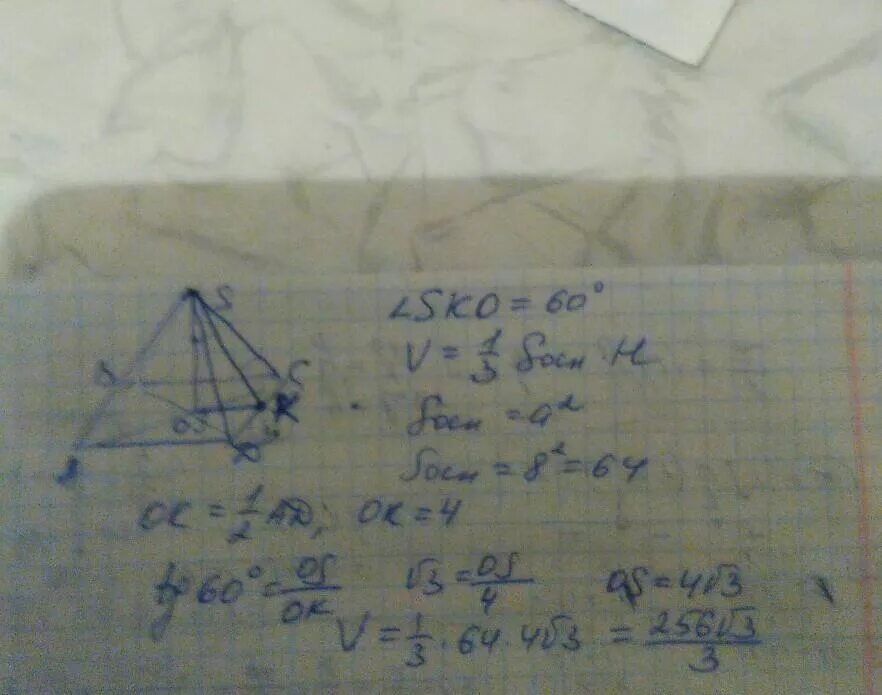 S
∠SKO = 60°
V = 1/3 Sосн · H
C
K
O
A
D
Sосн = a²
Sосн = 8² = 64
OK = 1/2 AD; OK = 4
tg 60° = OS/OK √3 = OS/4 OS = 4√3
V = 1/3 · 64 · 4√3 = 256√3/3